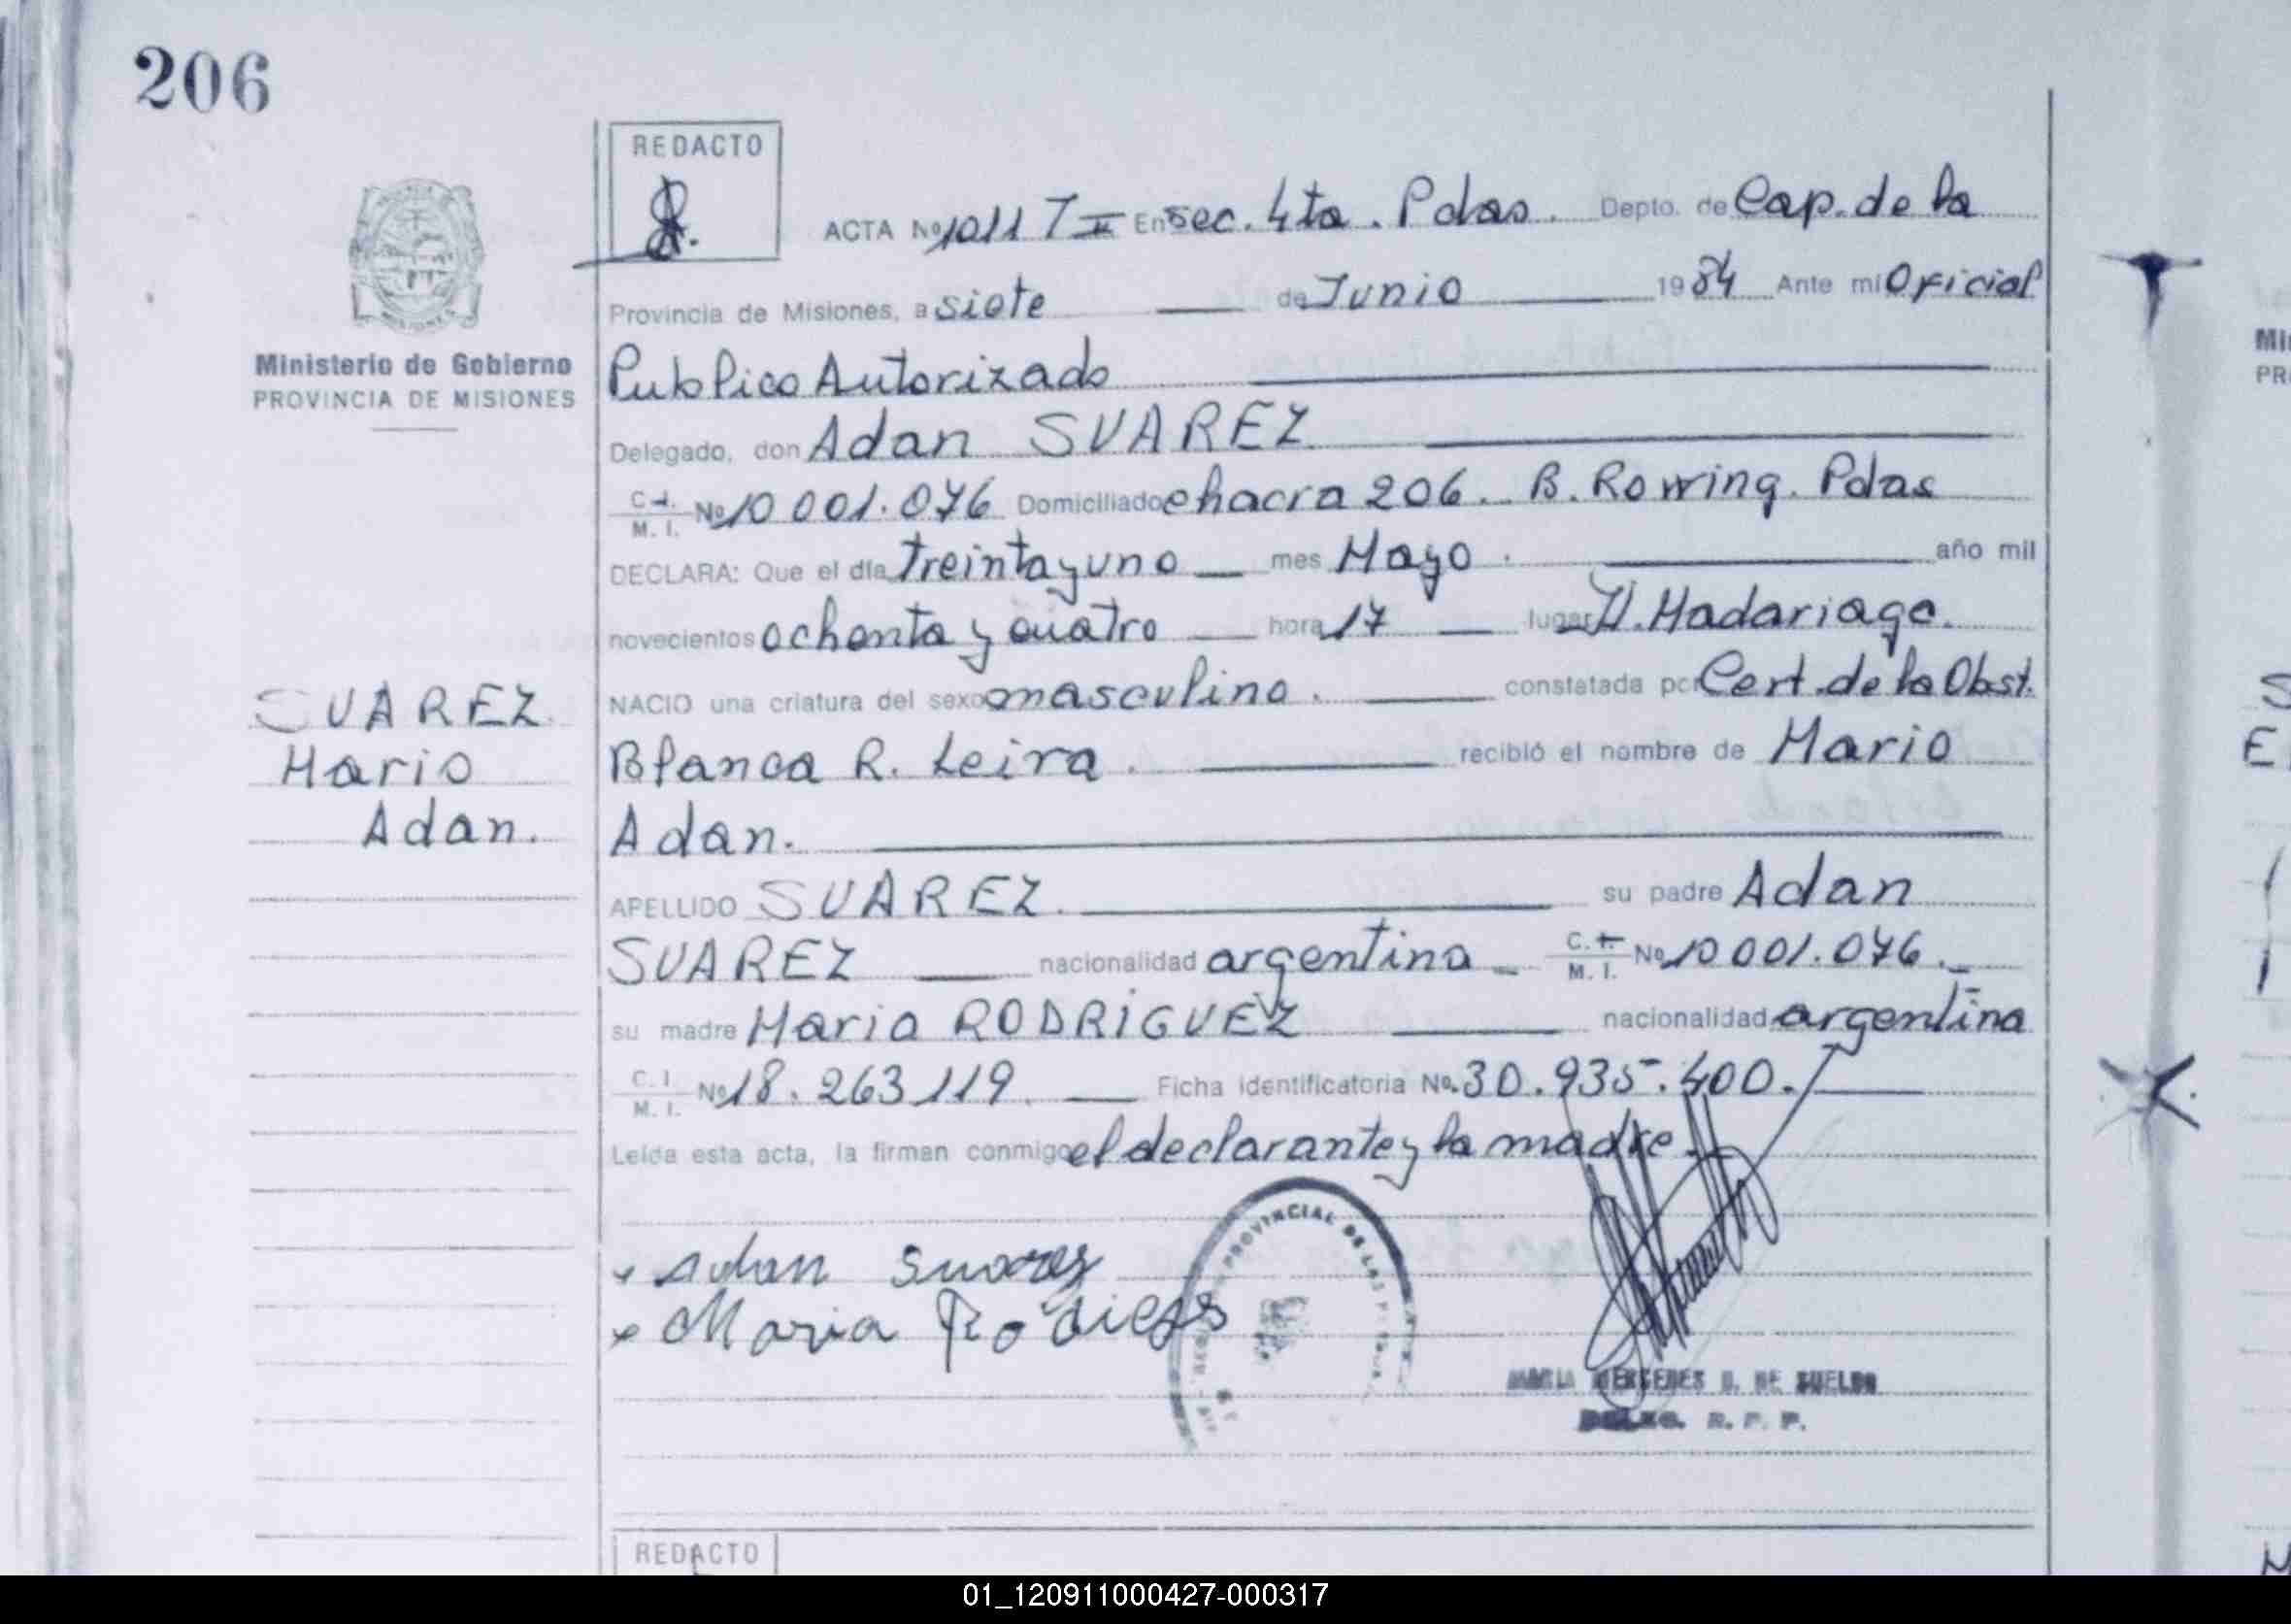 206
REDACTO
ACTA Nº 1011 T II En Sec. 4ta. Pdas. Depto. de Cap. de la
Provincia de Misiones, a siete de Junio 1984 Ante mí Oficial
Ministerio de Gobierno
PROVINCIA DE MISIONES
Publico Autorizado
Delegado, don Adan SUAREZ
C.I. M.I. Nº 10 001.076 Domiciliado chacra 206. B. Rowing. Pdas
DECLARA: Que el día treinta y uno mes Mayo. año mil
novecientos ochenta y cuatro hora 17 lugar H. Madariaga.
NACIO una criatura del sexo masculino. constatada por Cert. de la Obst.
Blanca R. Leira. recibió el nombre de Mario
Adan.
SUAREZ
Mario
Adan.
APELLIDO SUAREZ. su padre Adan
SUAREZ nacionalidad argentina C.I. M.I. Nº 10 001.076.
su madre Maria RODRIGUEZ nacionalidad argentina
C.I. M.I. Nº 18.263119. Ficha identificatoria Nº 30.935.400.
Leída esta acta, la firman conmigo el declarante y la madre.
x Adan Suarez
x Maria
PROVINCIAL DE LAS
MARIA MERCEDES DE SUELDO
R. P. P.
REDACTO
01_120911000427-000317